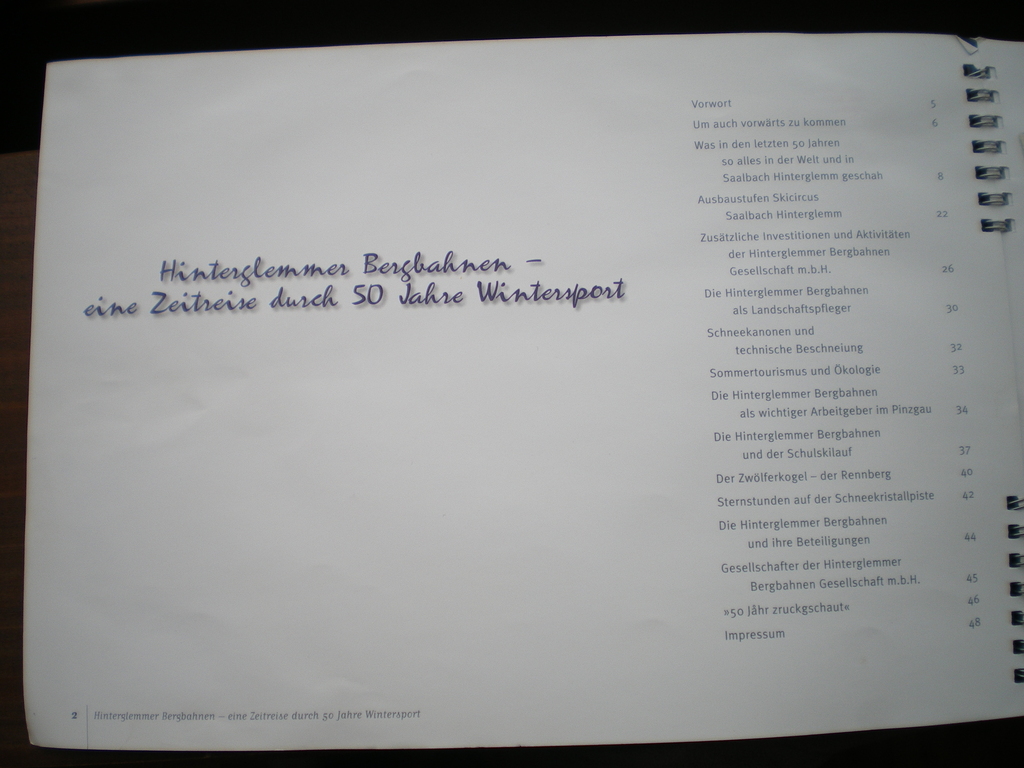 Hinterglemmer Bergbahnen –
eine Zeitreise durch 50 Jahre Wintersport
Vorwort 5
Um auch vorwärts zu kommen 6
Was in den letzten 50 Jahren
so alles in der Welt und in
Saalbach Hinterglemm geschah 8
Ausbaustufen Skicircus
Saalbach Hinterglemm 22
Zusätzliche Investitionen und Aktivitäten
der Hinterglemmer Bergbahnen
Gesellschaft m.b.H. 26
Die Hinterglemmer Bergbahnen
als Landschaftspfleger 30
Schneekanonen und
technische Beschneiung 32
Sommertourismus und Ökologie 33
Die Hinterglemmer Bergbahnen
als wichtiger Arbeitgeber im Pinzgau 34
Die Hinterglemmer Bergbahnen
und der Schulskilauf 37
Der Zwölferkogel – der Rennberg 40
Sternstunden auf der Schneekristallpiste 42
Die Hinterglemmer Bergbahnen
und ihre Beteiligungen 44
Gesellschafter der Hinterglemmer
Bergbahnen Gesellschaft m.b.H. 45
»50 Jåhr zruckgschaut« 46
Impressum 48
2 Hinterglemmer Bergbahnen – eine Zeitreise durch 50 Jahre Wintersport